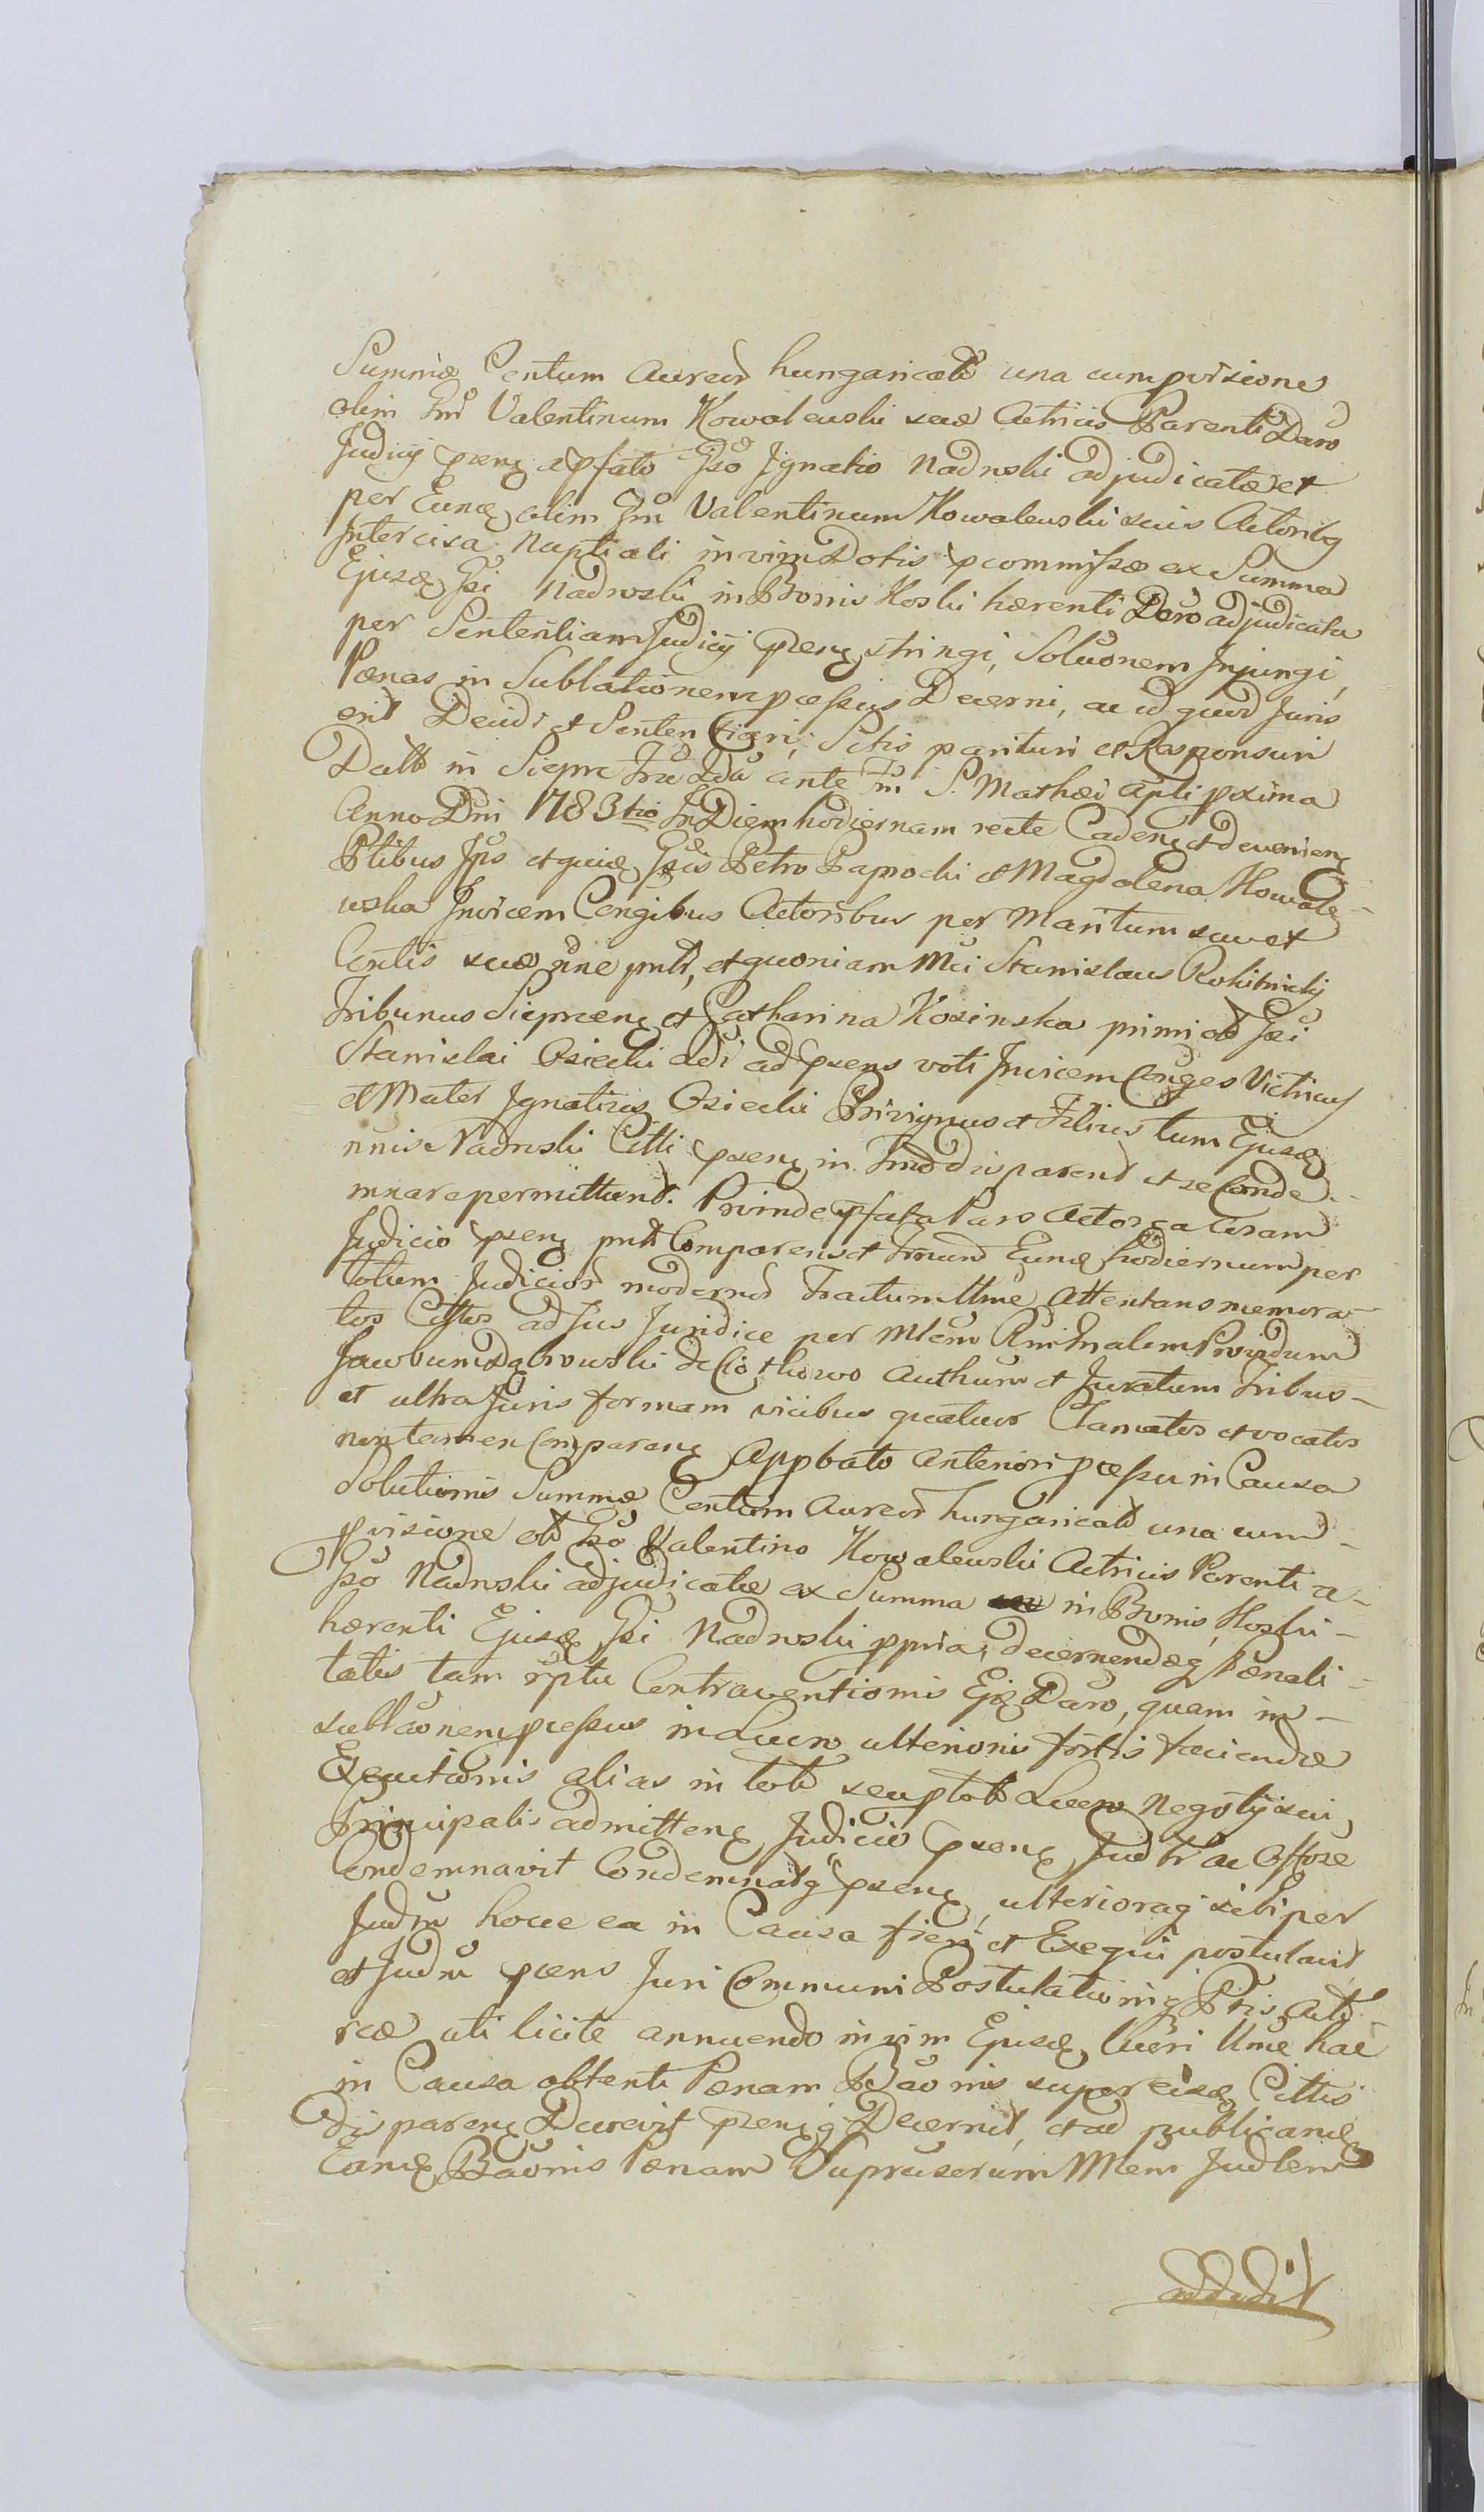 Summæ Centum Aureor hungaricalū una cum pvisione
olim Gsū Valentinum Kowalewski suæ Actricis Parenti Dcro
Judicÿ præns a pfato Gso Ignatio Nadroski adjudicatæ et
per Eund olim Gsū Valentinum Kowalewski suis Actoribg
Intercisa Nuptiali in vim Dotis pcommissæ ex Summa
Ejusd Gsi Nadroski in Bonis Koski hærenti Dcro adjudicata
per Sententiam Judicÿ præns stringi, Soluonem Injungi,
Pœnas in Sublationem pcessus Decerni, ac id quod Juris
erit Decidi et Sententiari, Sitis parituri et Responsuri
Datt in Sieprc Fria 2da ante Fm S. Mathæi Apli pxima
Anno Dni 1783tio In Diem hodiernam recte Cadens et devenien
Ptibus Ipis et quia Gsis Petro Rapocki et Magdalena Kowale-
wska Invicem Congibus Actoribus per Maritum suu et
Contlis suæ nne pntt, et quoniam Mci Stanislaus Rokitnicki
Tribunus Sieprcens et Catharina Kosinska primi olī Gsi
Stanislai Osiecki 2di ad præns voti Invicem Conges Victricus
et Mater Ignatius Osiecki Privignus et Filius tum Ejusd
nnis Nadroski Citti præns in Tmno disparent et se Conde-
mnare permittunt. Proinde pfata Pars Actorea Coram
Judicio præns pntr Comparens et Tmnum Eund hodiernum per
totum Judicior modernor Tractum Ume Attentans memora-
tos Cittos ad Jus Juridice per Mlem Rmi Trnalem Providum
Jacobum Dąbrowski de Ciothowo Authum et Juratum Tribus-
et ultra Juris formam vicibus quatuor Clamatos et vocatos
non tamen Comparens Appbato anteriori pcessu in Causa
Solutionis Summæ Centum Aureor hungaricalū una cum-
pvisione olī Gso Valentino Kowalewski Actricis Parenti a-
Gso Nadroski adjudicatæ ex Summa in Bonis Koski-
hærenti Ejusd Gsi Nadroski ppria, decernendæq Pœnali-
tatis tam rptu Contraventionis Ejsd Dcro, quam in-
sublaonem pcessus in Lucro ulterioris fortis faciendæ
Executionis alias in toto seu ptali Lucro Negotÿ sui
Principalis admittens Judicio præns Judlr ac Offose
Condemnavit Condemnatq præns, ulteriorag sibi per
Judm hocce ea in Causa fieri et Exequi postulavit
et Judm præns Juri Communi Postulationiq Ptis Acto
reæ uti licite annuendo in vim Ejusd Lucri Ume hac
in Causa obtenti Pœnam Bāonis super eisd Cittis
disparens Decrevit prænsq Decernit, et ad publicand
Eand Bāonis Pœnam Suprascrum Mlem Judlem
addidit